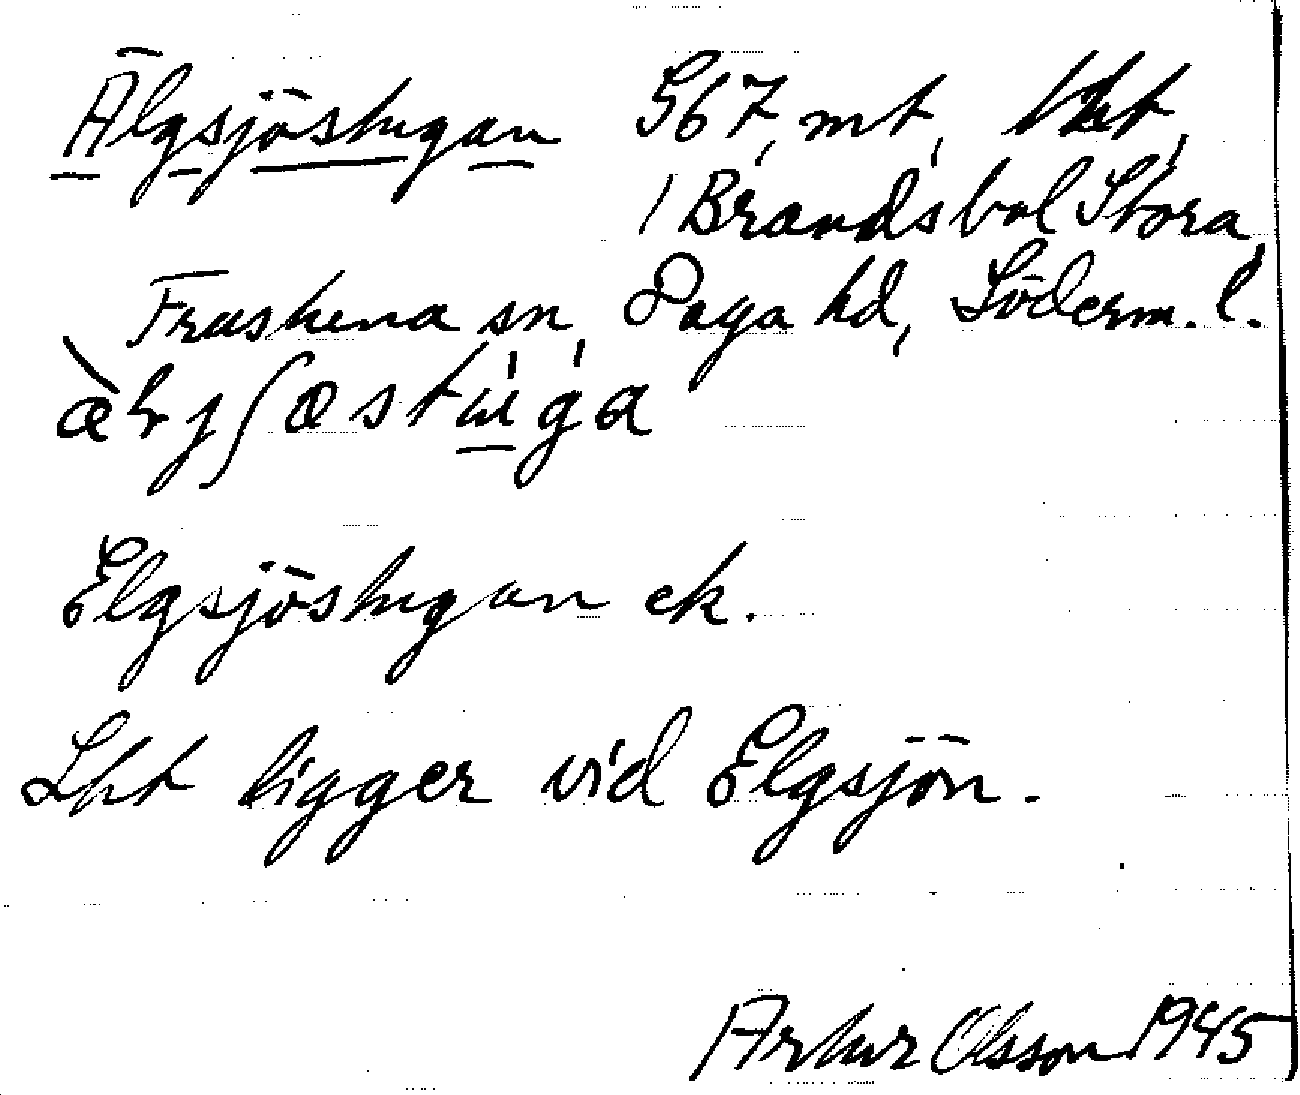 Älgsjöstugan 567, mt, lht,
/ Brandsbol Stora,
Frustuna sn, Daga hd, Söderm. l.
Elgsjöstugan ek.
Lht ligger vid Elgsjön.
Arthur Olsson 1945